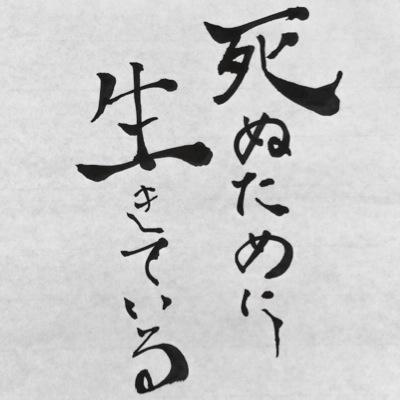 死ぬために
生きている